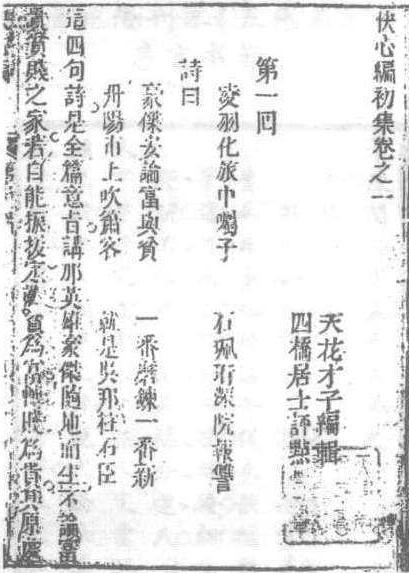 快心編初集卷之一
天花才子編輯
四橋居士評點
第一回
凌羽化旅中囑子 石珮珩深院報讐
詩曰
豪傑安論富與貧 一番磨鍊一番新
丹陽市上吹簫客 就是吳邦柱石臣
這四句詩是全篇意旨講那英雄豪傑隨地而生不論富
貴貧賤之家若自能振拔定